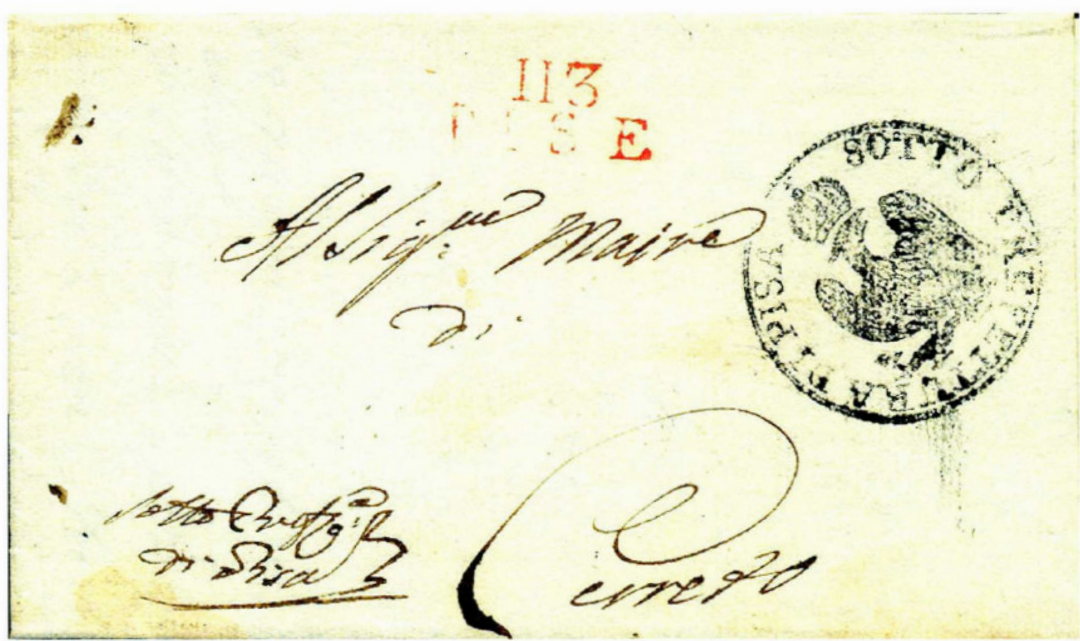 113
PISE
SOTTO PREFETTURA DI PISA
Al Sig.re Maire
di
Cerreto
Sotto Pref.a
di Pisa